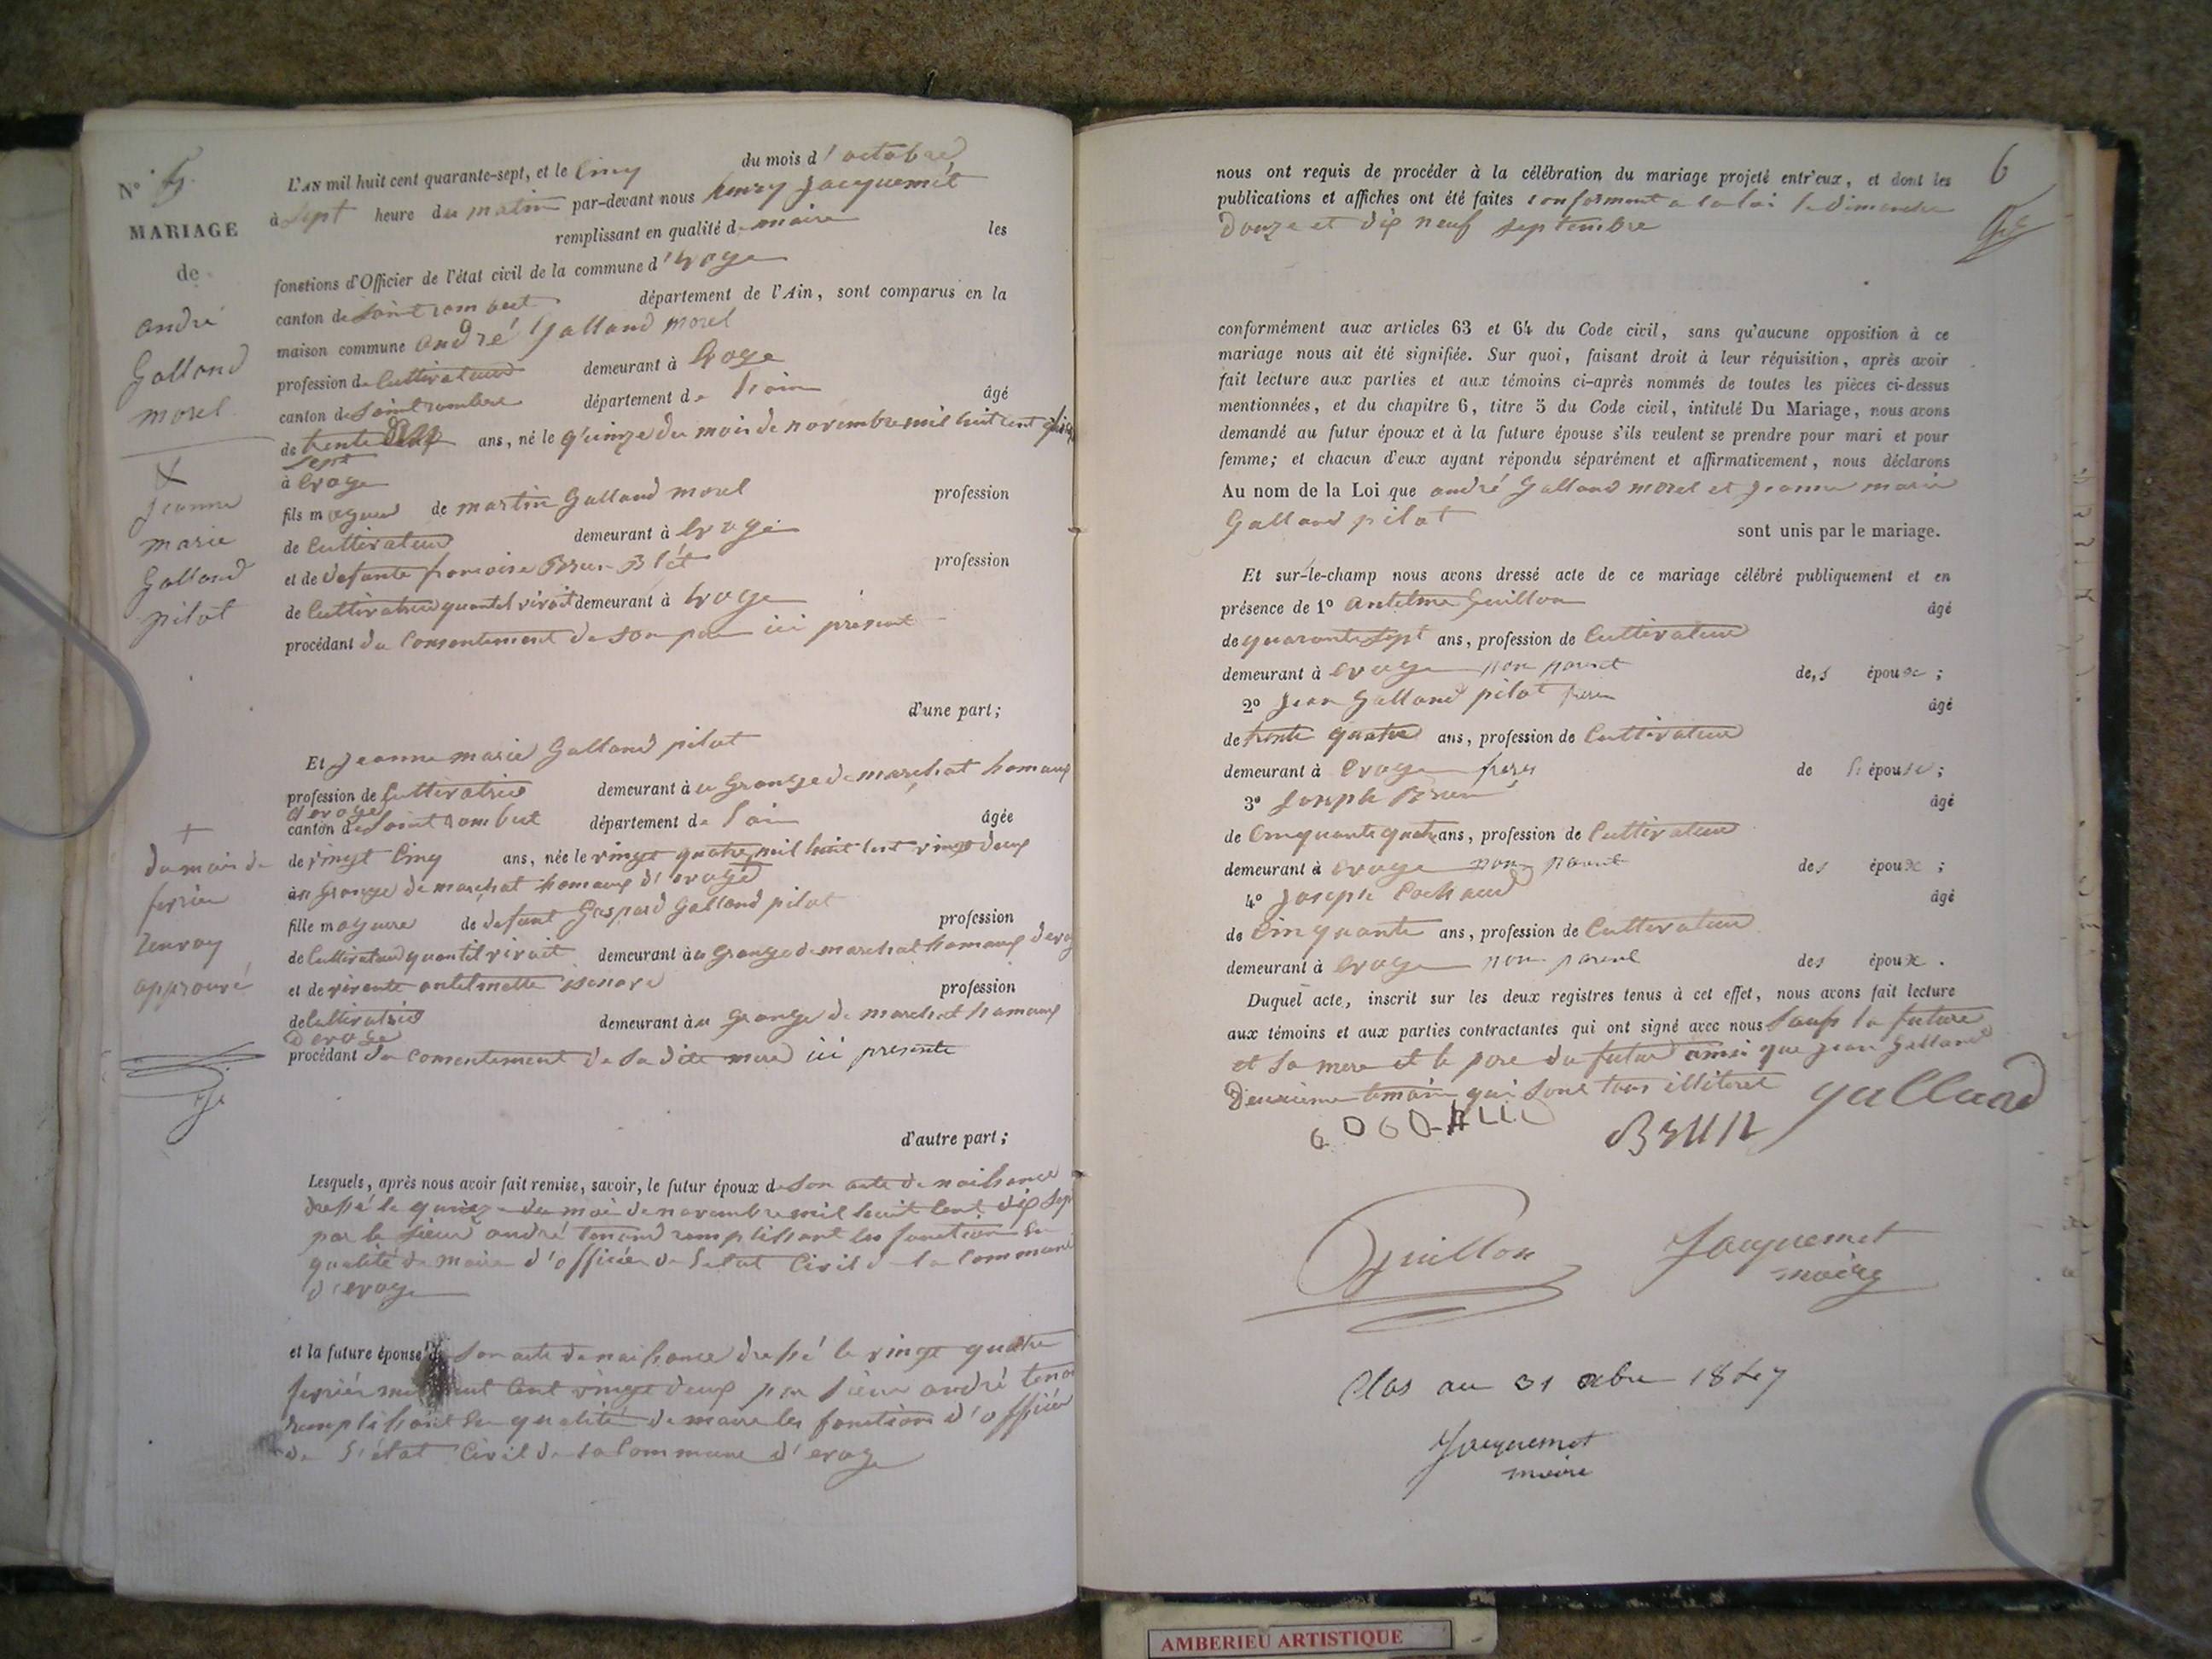 N° 5.
MARIAGE
de
andré
Galland
morel
&
jeanne
marie
Galland
pilot
L'AN mil huit cent quarante-sept, et le cinq du mois d'octobre
à sept heure du matin par-devant nous henry jacquemet
remplissant en qualité de maire les
fonctions d'Officier de l'état civil de la commune d'evoge
canton de Saint rambert département de l'Ain, sont comparus en la
maison commune andré Galland morel
profession de cultivateur demeurant à Evoge
canton de Saint rambert département de l'ain âgé
de trente ans, né le quinze du mois de novembre mil huit cent
sept
à Evoge
fils mageur de martin Galland morel profession
de cultivateur demeurant à Evoge
et de defunte francoise Brun Blét profession
de cultivatrice quantel vivait demeurant à Evoge
procédant du consentement de son père ici présent
d'une part;
Et jeanne marie Galland pilot
profession de cultivatrice demeurant à la Grange de marchat hamaux
d'evoge
canton de Saint rambert département de l'ain âgée
de vingt cinq ans, née le vingt quatre mil huit cent vingt deux
+
du mois de
fevrier
renvoy
approuvé
à la Grange de marchat hamaux d'evoge
fille mageure de defunt Gaspard Galland pilot profession
de cultivateur quantil vivait demeurant à la Grange de marchat hamaux
et de vivante antelmette profession
de cultivatrice demeurant à la Grange de marchat hamaux
d'evoge
procédant du consentement de sa dite mere ici presente
d'autre part;
Lesquels, après nous avoir fait remise, savoir, le futur époux de son acte de naissance
dressé le quinze du mois de novembre mil huit cent dix sept
par le sieur andré tenand remplissant les fonctions en
qualité de maire d'officier de l'etat civil de la commune
d'evoge
et la future épouse de son acte de naissance dressé le vingt quatre
fevrier mil huit cent vingt deux par sieur andré
remplissant en qualité de maire les fonctions d'officier
de l'état civil de la commune d'evoge
6
nous ont requis de procéder à la célébration du mariage projeté entr'eux, et dont les
publications et affiches ont été faites conforment a la loi le dimanche
douze et dix neuf septembre
conformément aux articles 63 et 64 du Code civil, sans qu'aucune opposition à ce
mariage nous ait été signifiée. Sur quoi, faisant droit à leur réquisition, après avoir
fait lecture aux parties et aux témoins ci-après nommés de toutes les pièces ci-dessus
mentionnées, et du chapitre 6, titre 5 du Code civil, intitulé Du Mariage, nous avons
demandé au futur époux et à la future épouse s'ils veulent se prendre pour mari et pour
femme; et chacun d'eux ayant répondu séparément et affirmativement, nous déclarons
Au nom de la Loi que andré Galland morel et jeanne marie
Galland pilot
sont unis par le mariage.
Et sur-le-champ nous avons dressé acte de ce mariage célébré publiquement et en
présence de 1° Antelme Guillon âgé
de quarante sept ans, profession de cultivateur
demeurant à evoge non parent des époux;
2° jean Galland pilot frere âgé
de trente quatre ans, profession de cultivateur
demeurant à evoge frere de l'épouse;
3° joseph Brun âgé
de cinquante quatre ans, profession de cultivateur
demeurant à evoge non parent des époux;
4° joseph âgé
de cinquante ans, profession de cultivateur
demeurant à evoge non parent des époux.
Duquel acte, inscrit sur les deux registres tenus à cet effet, nous avons fait lecture
aux témoins et aux parties contractantes qui ont signé avec nous sauf la future
et sa mere et le pere du futur ainsi que jean Galland
deuxieme temoin qui sont tous illiteret
galland
BRUN
Guillon
Jacquemet
maire
Clos au 31 xbre 1847
Jacquemet
maire
AMBERIEU ARTISTIQUE